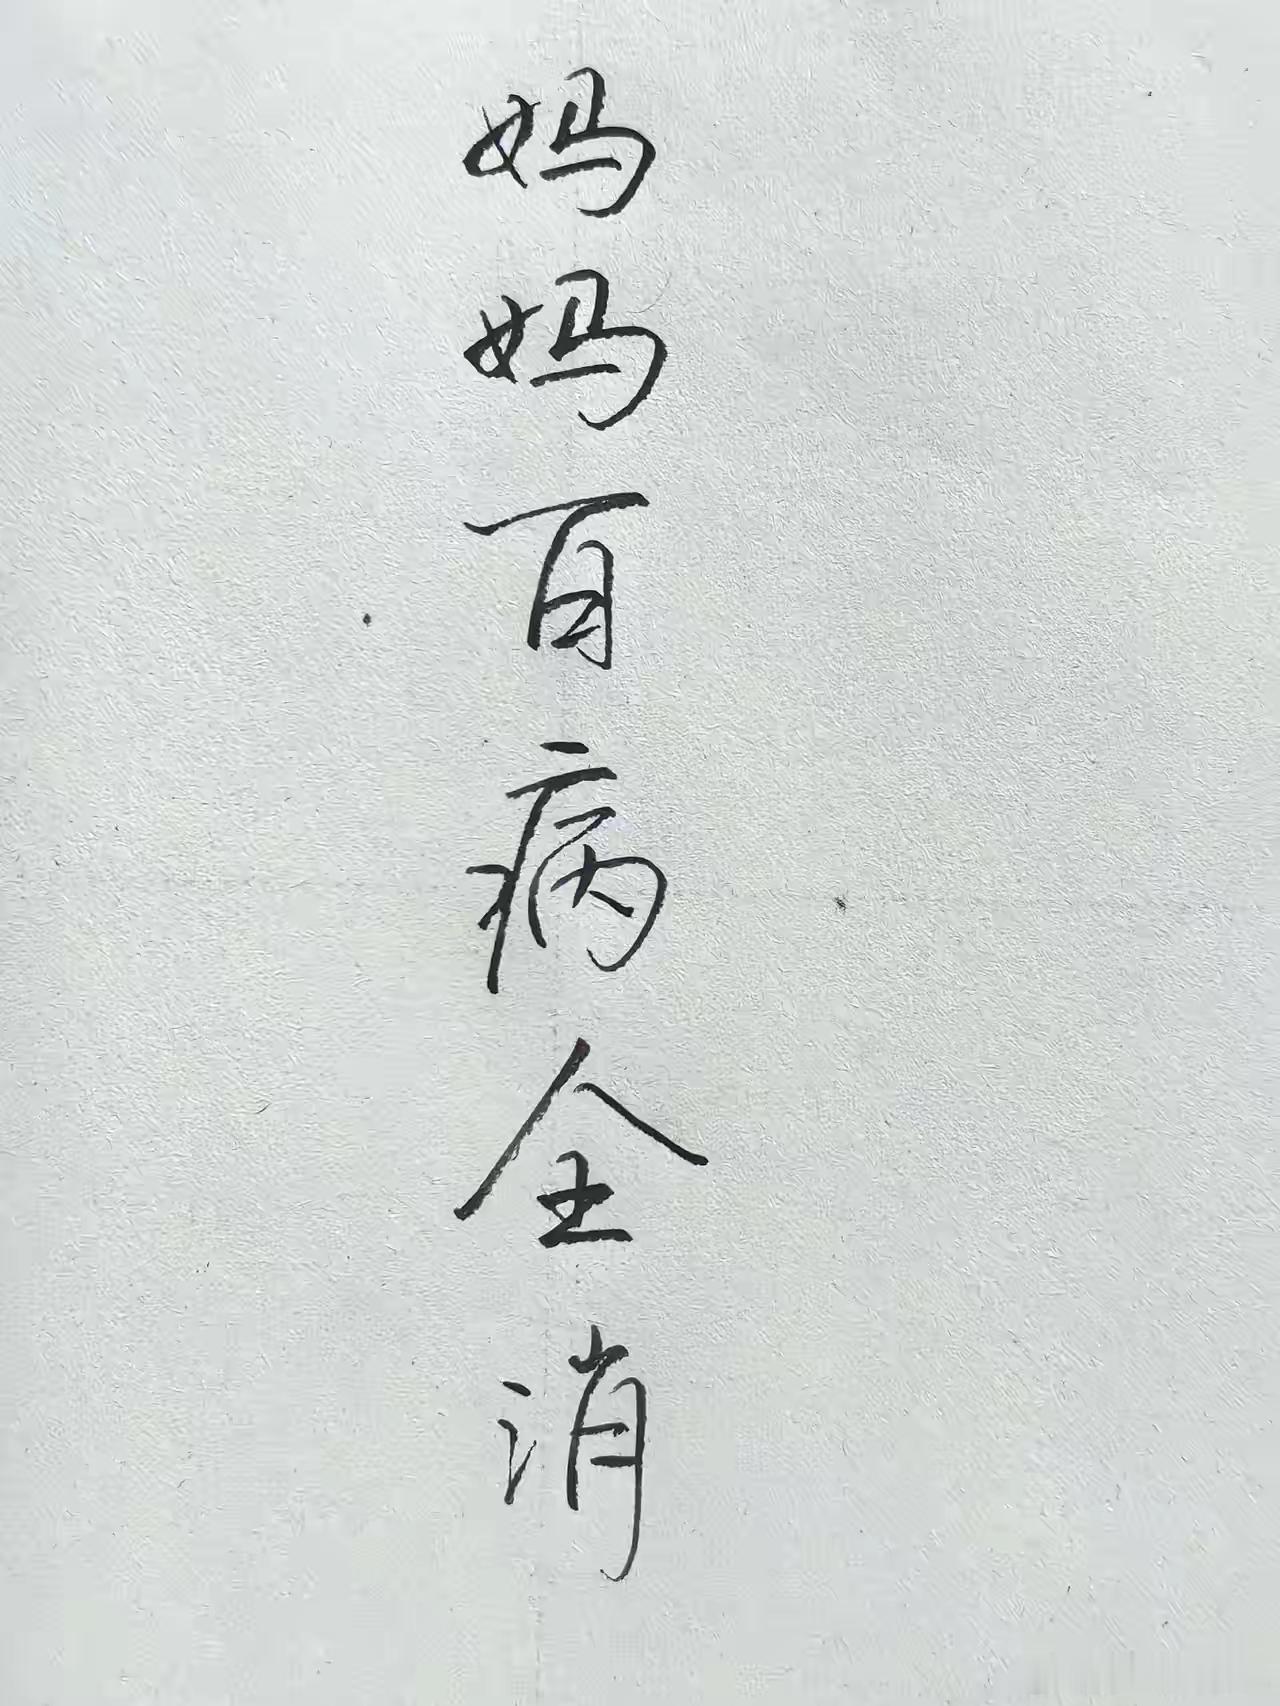 妈妈百病全消